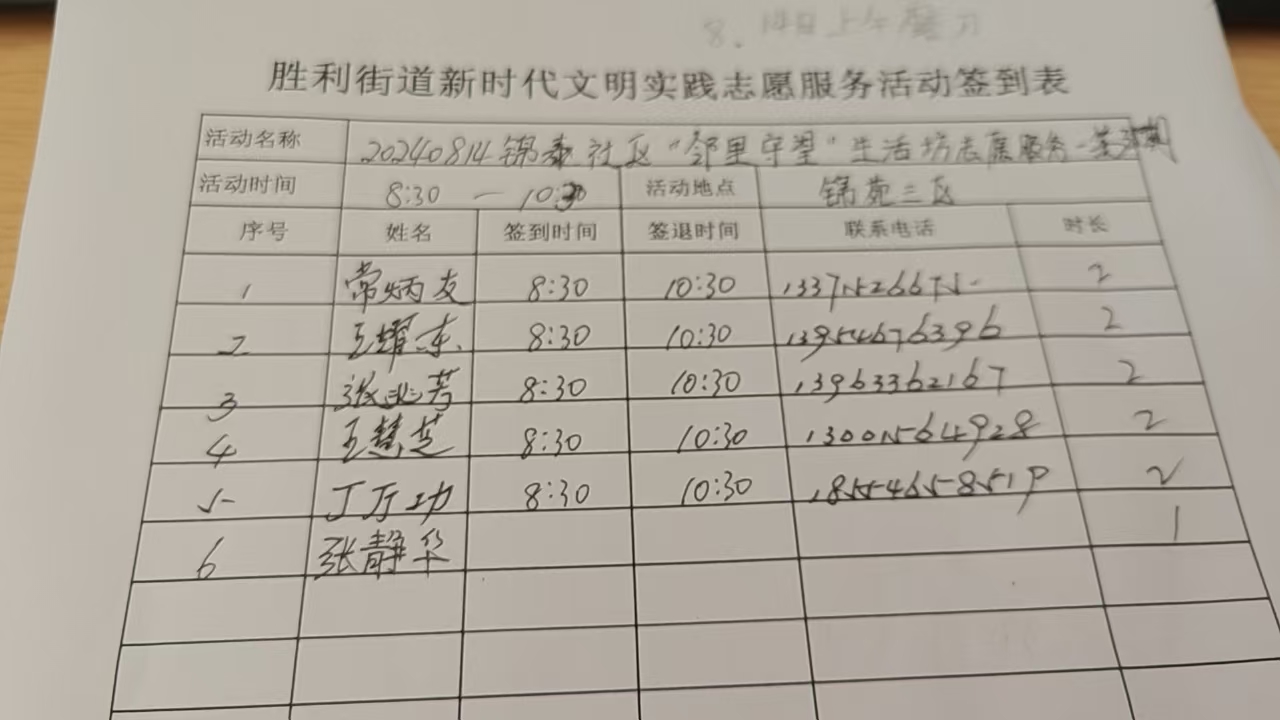 8.14日上午磨刀
胜利街道新时代文明实践志愿服务活动签到表
活动名称 20240814锦泰社区“邻里守望”生活坊志愿服务
活动时间 8:30 — 10:30 活动地点 锦苑三区
序号 姓名 签到时间 签退时间 联系电话 时长
1 常炳友 8:30 10:30 1337526675 2
2 王耀东 8:30 10:30 13954676396 2
3 张兆芳 8:30 10:30 13963362167 2
4 王慧芝 8:30 10:30 1300564928 2
5 丁万功 8:30 10:30 18554658519 2
6 张静华 1